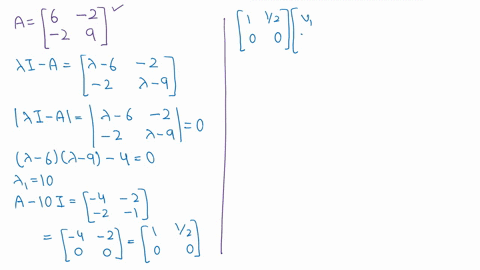 A = [6 −2; −2 9] ✓
λI−A = [λ−6 −2; −2 λ−9]
|λI−A| = |λ−6 −2; −2 λ−9| = 0
(λ−6)(λ−9) − 4 = 0
λ₁ = 10
A−10I = [−4 −2; −2 −1]
= [−4 −2; 0 0] = [1 1/2; 0 0]
[1 1/2; 0 0] [v₁